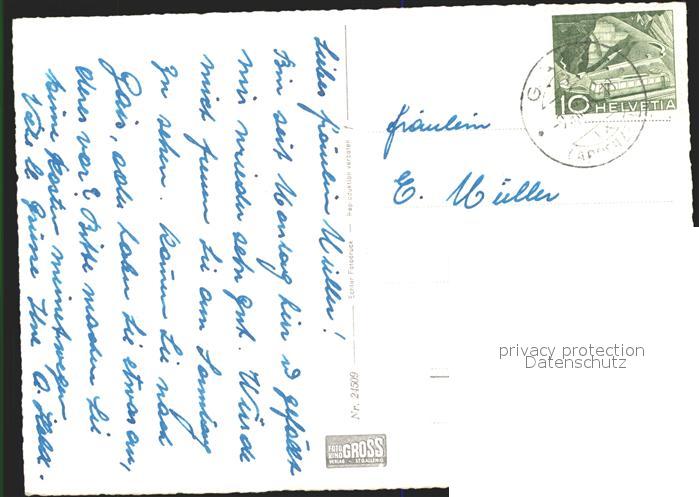 Liebes Fräulein Müller!
Bin seit Montag hier u gefällt
mir wieder sehr gut. Würde
mich freuen Sie am Samstag
zu sehen. Kommen Sie nach
Gais, oder haben Sie etwas an,
deres vor? Bitte machen Sie
keine Kosten meinetwegen
Viele l. Grüsse Ihre A.
Echter Fotodruck — Reproduktion verboten!
Nr. 21509
FOTO
KINO GROSS
VERLAG ST. GALLEN
10 HELVETIA
Fräulein
E. Müller
privacy protection
Datenschutz